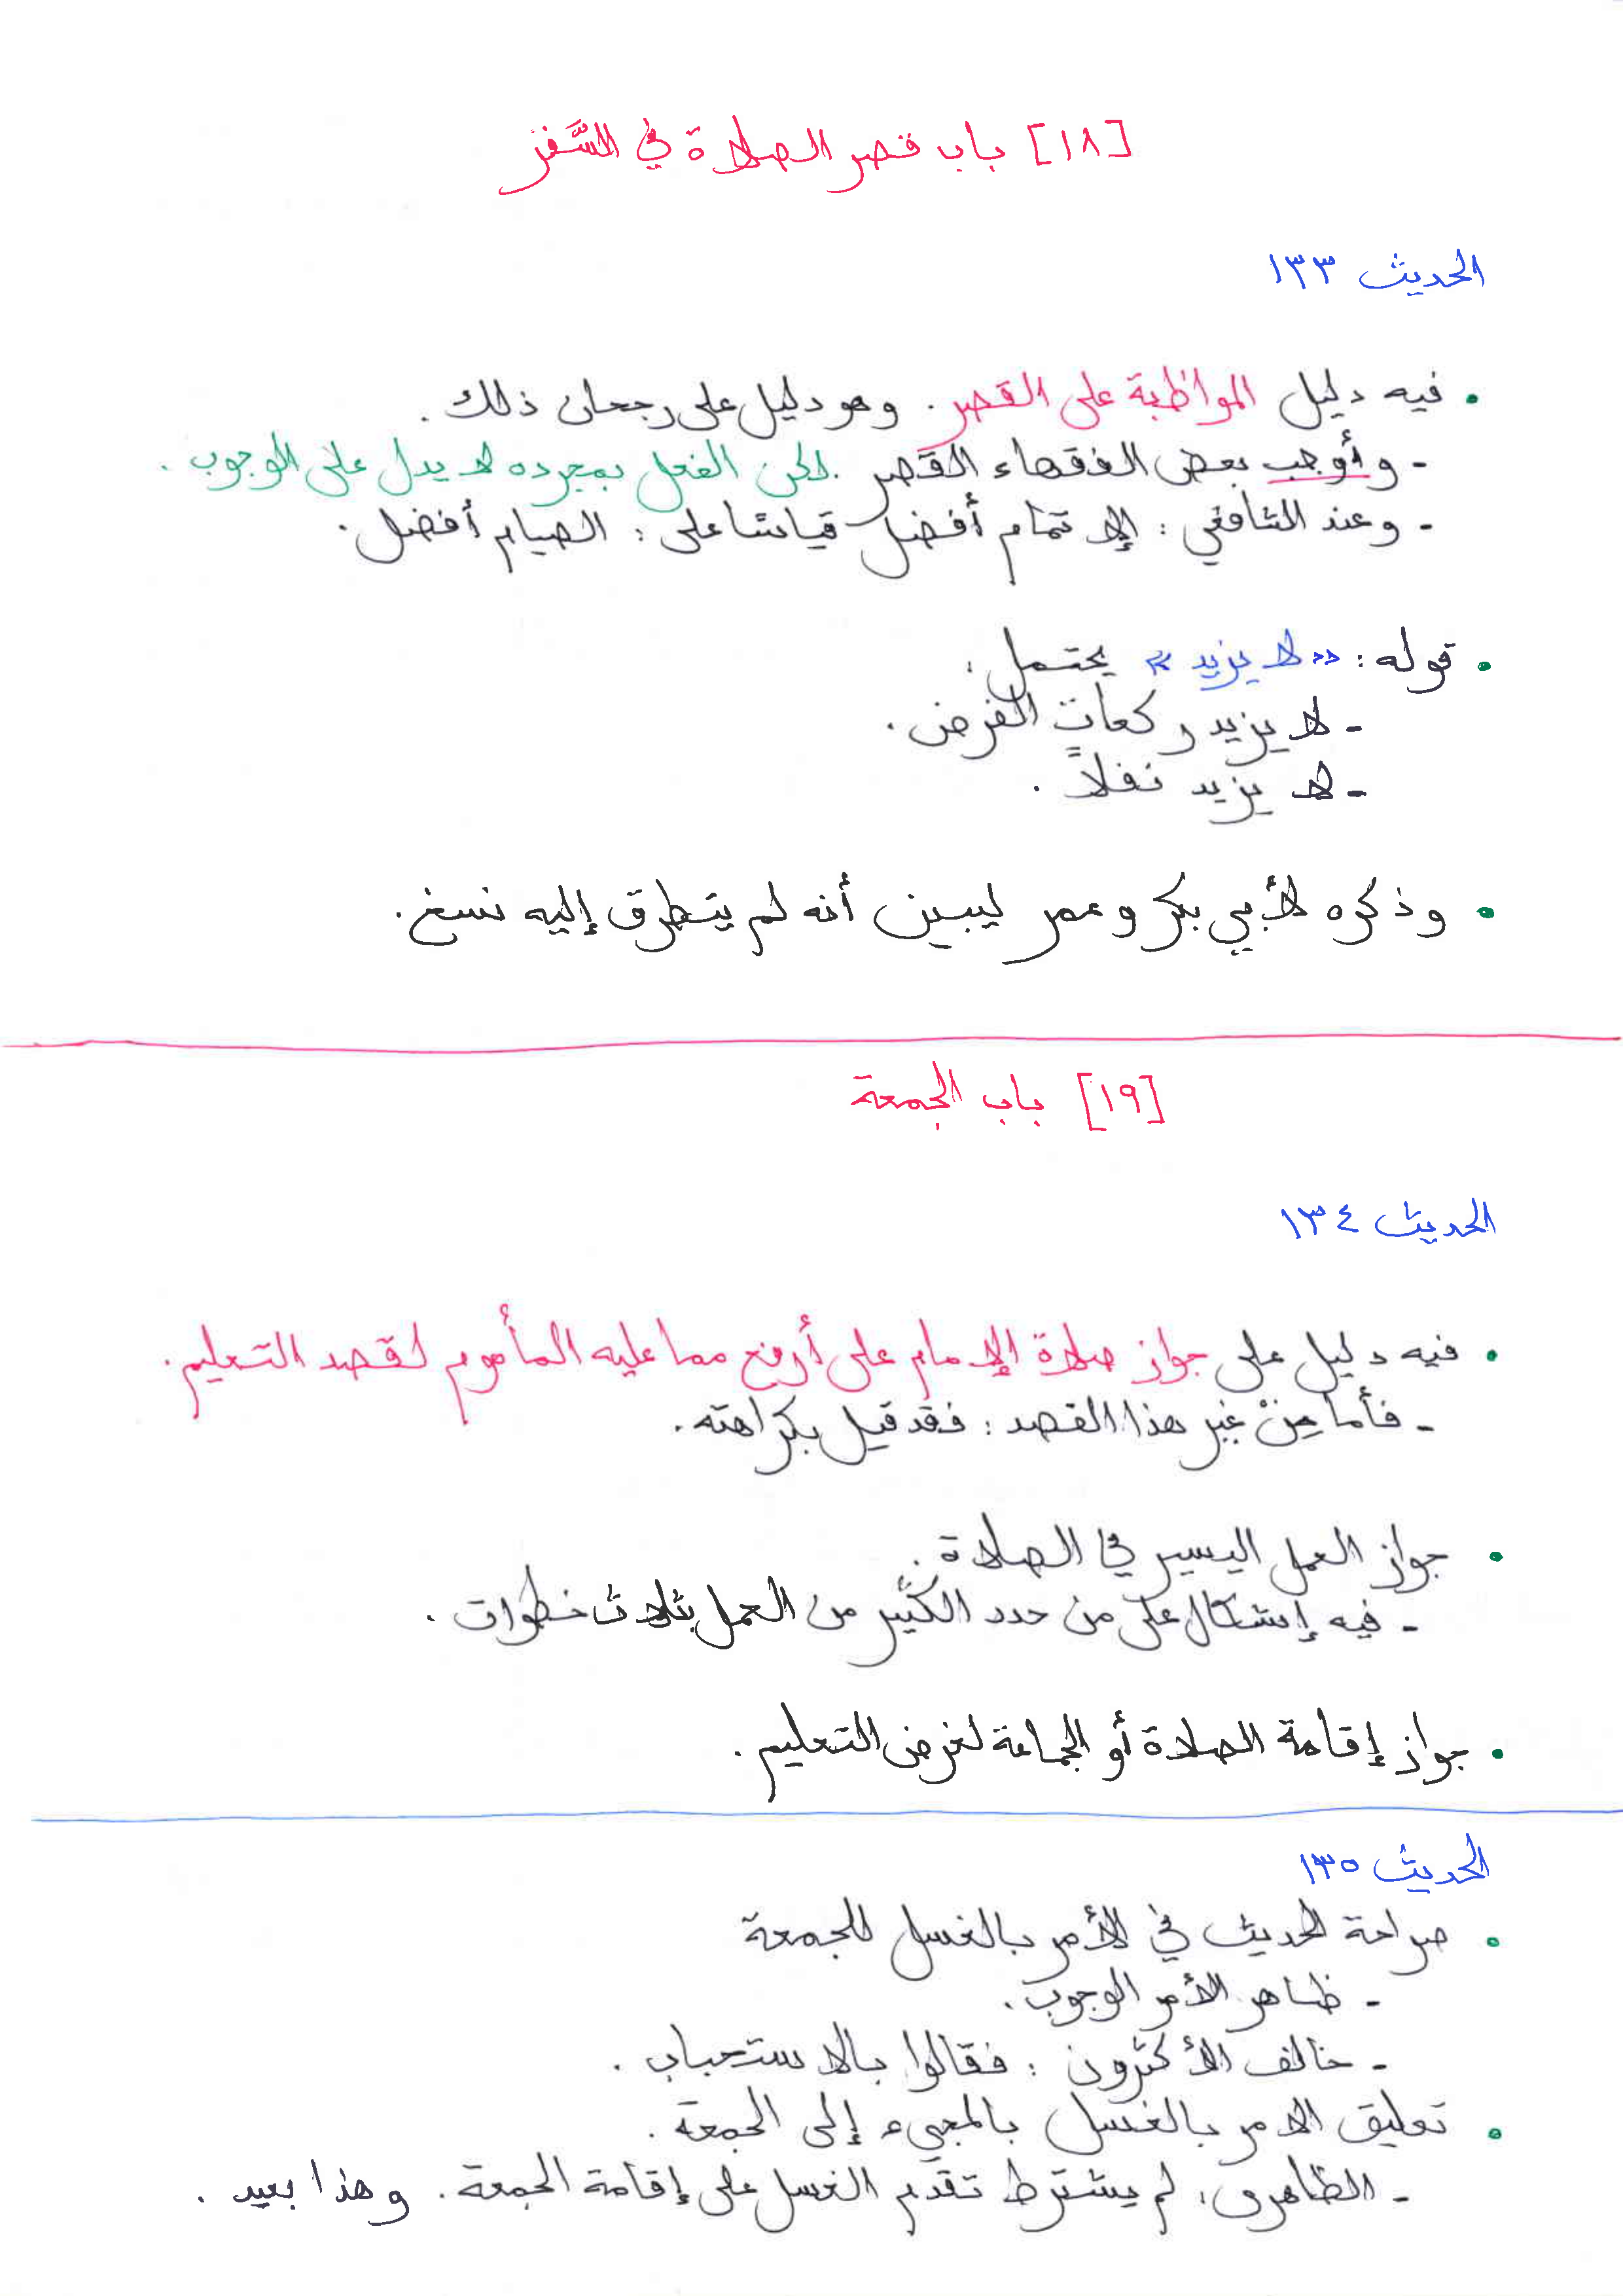 [١٨] باب قصر الصلاة في السَّفر
الحديث ١٣٣
• فيه دليل المواظبة على القصر. وهو دليل على رجحان ذلك.
- وأوجب بعض الفقهاء القصر. لكن الفعل بمجرده لا يدل على الوجوب.
- وعند الشافعي: الإتمام أفضل قياسًا على: الصيام أفضل.
• قوله: «لا يزيد» يحتمل:
- لا يزيد ركعاتٍ الفرض.
- لا يزيد نفلاً.
• وذكره لأبي بكر وعمر ليبين أنه لم يتطرق إليه نسخ.
[١٩] باب الجمعة
الحديث ١٣٤
• فيه دليل على جواز صلاة الإمام على أرفع مما عليه المأموم لقصد التعليم.
- فأما مِنْ غير هذا القصد: فقد قيل بكراهته.
• جواز العمل اليسير في الصلاة.
- فيه إشكال على من حدد الكثير من العمل بثلاث خطوات.
• جواز إقامة الصلاة أو الجماعة لغرض التعليم.
الحديث ١٣٥
• صراحة الحديث في الأمر بالغسل للجمعة
- ظاهر الأمر الوجوب.
- خالف الأكثرون: فقالوا بالاستحباب.
• تعليق الامر بالغسل بالمجيء إلى الجمعة.
- الظاهري: لم يشترط تقدم الغسل على إقامة الجمعة. وهذا بعيد.